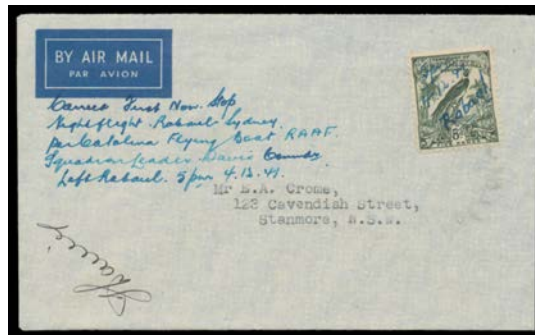 BY AIR MAIL
PAR AVION
Carried First Non Stop
Night flight. Rabaul-Sydney.
per Catalina Flying Boat RAAF.
Squadron Leader
Left Rabaul. 5pm 4.12.41.
Rabaul
Mr E.A. Crome,
123 Cavendish Street,
Stanmore, N.S.W.